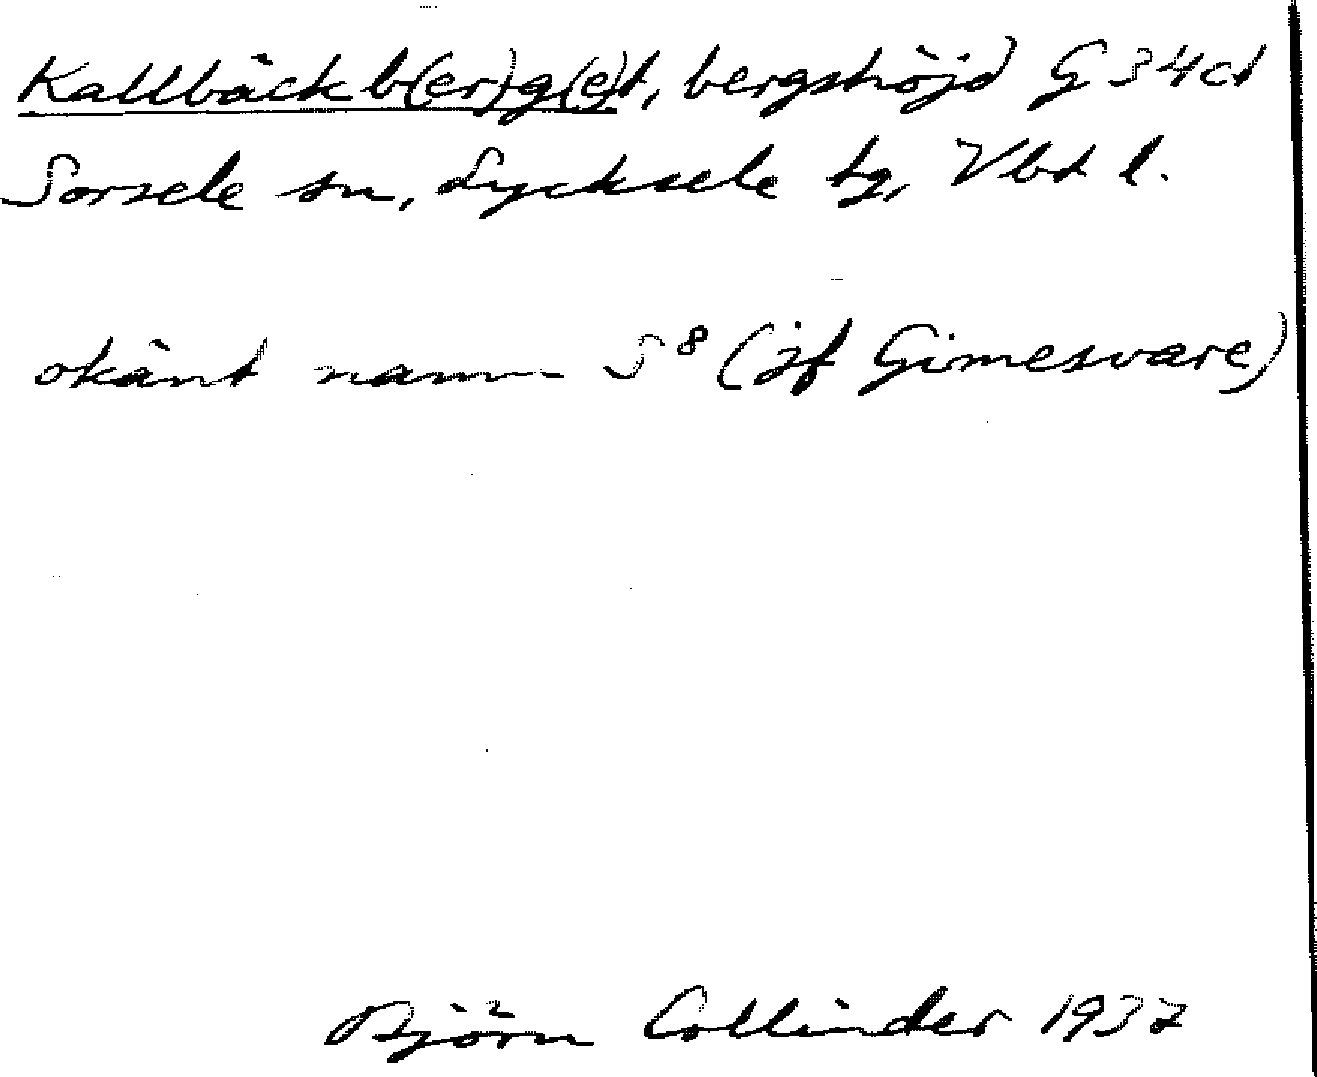 Kallbäckb(er)g(e)t, bergshöjd G 34 cd
Sorsele sn, Lycksele tg, Vbt l.
okänt namn S⁸ (jf Gimesvare)
Björn Collinder 1937